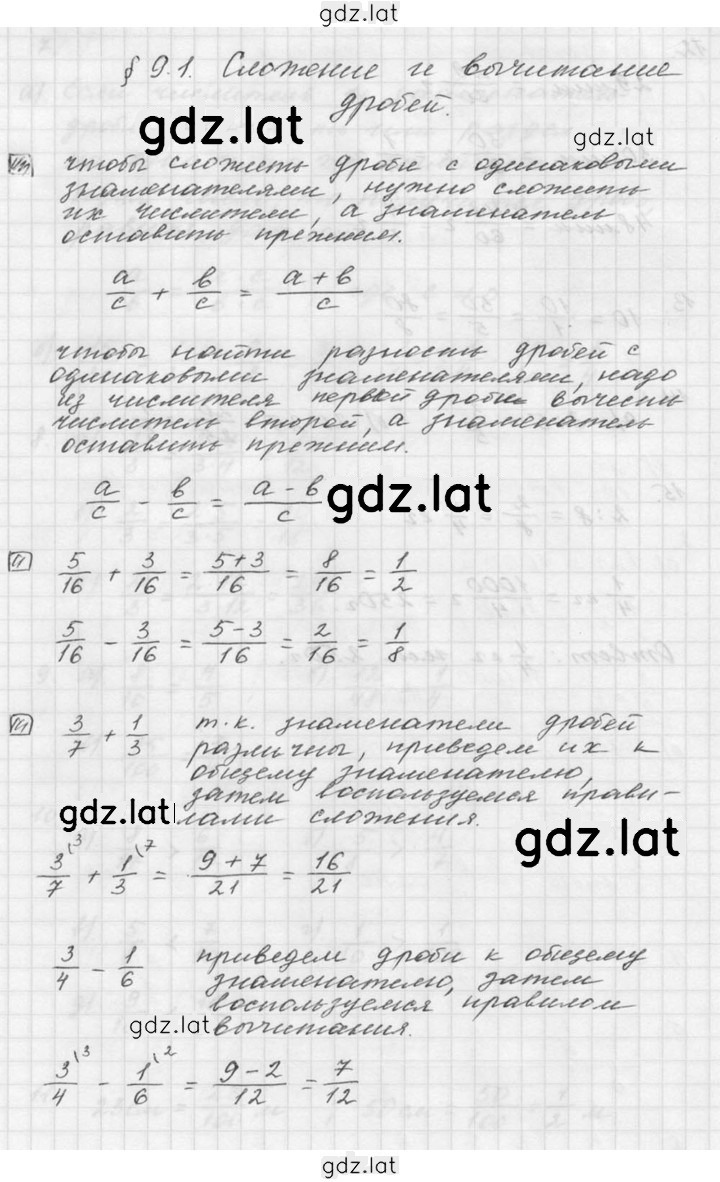 gdz.lat
§ 9.1. Сложение и вычитание
дробей.
gdz.lat
gdz.lat
чтобы сложить дроби с одинаковыми
знаменателями, нужно сложить
их числители, а знаминатель
оставить прежним.
a/c + b/c = a+b/c
чтобы найти разность дробей с
одинаковыми знаменателями, надо
из числителя первой дроби вычесть
числитель второй, а знаменатель
оставить прежним.
a/c - b/c = a-b/c
gdz.lat
5/16 + 3/16 = 5+3/16 = 8/16 = 1/2
5/16 - 3/16 = 5-3/16 = 2/16 = 1/8
3/7 + 1/3 т.к. знаменатели дробей
различны, приведем их к
общему знаменателю,
затем воспользуемся прави-
лами сложения.
gdz.lat
gdz.lat
3/7 \3 + 1/3 \7 = 9+7/21 = 16/21
3/4 - 1/6 приведем дроби к общему
знаменателю, затем
воспользуемся правилом
вычитания.
gdz.lat
3/4 \3 - 1/6 \2 = 9-2/12 = 7/12
gdz.lat